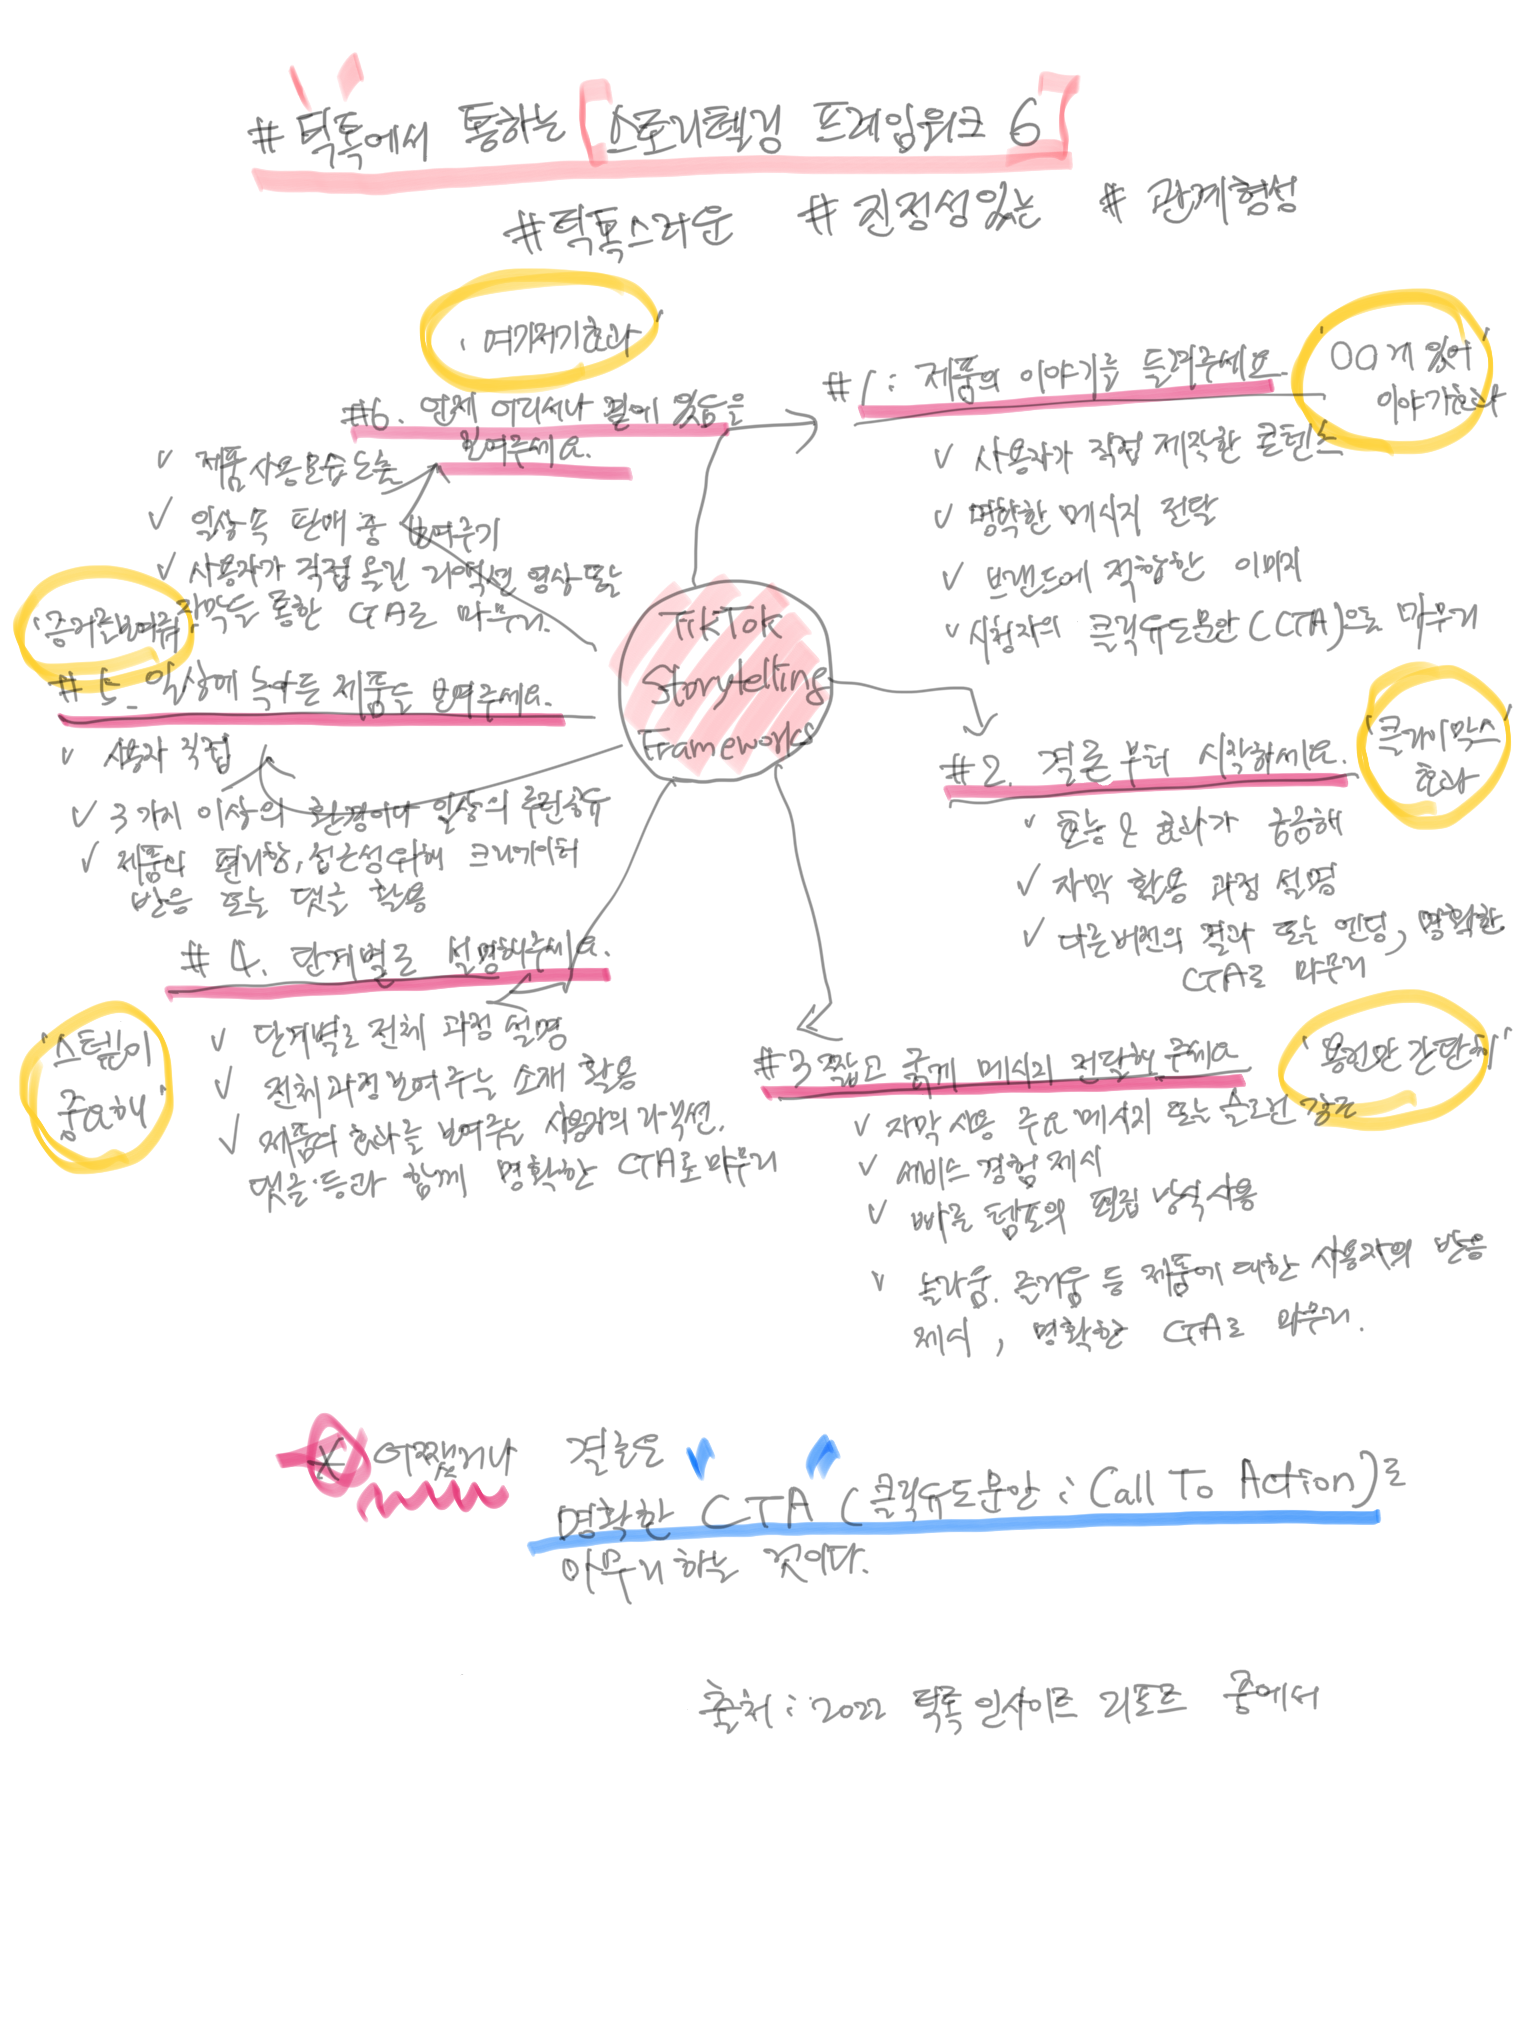 # 틱톡에서 통하는 [스토리텔링 프레임워크 6]
#틱톡스러운 # 진정성있는 # 관계형성
TikTok
Storytelling
Frameworks
'OO게 있어
이야기효과'
#1: 제품의 이야기를 들려주세요.
✓ 사용자가 직접 제작한 콘텐츠
✓ 명확한 메시지 전달
✓ 브랜드에 적합한 이미지
✓ 시청자의 클릭유도문안(CTA)으로 마무리
'클라이막스
효과'
#2. 결론부터 시작하세요.
✓ 효능과 효과가 궁금해
✓ 자막 활용 과정 설명
✓ 다른버전의 결과 또는 엔딩, 명확한
CTA로 마무리
'용건만 간단히'
#3 짧고 굵게 메시지 전달해 주세요
✓ 자막 사용 주요 메시지 또는 슬로건 강조
✓ 서비스 경험 제시
✓ 빠른 템포의 편집 방식 사용
✓ 놀라움, 즐거움 등 제품에 대한 사용자의 반응
제시, 명확한 CTA로 마무리.
#4. 단계별로 설명해주세요.
'스텝이
중요해'
✓ 단계별로 전체 과정 설명
✓ 전체과정 보여주는 소재 활용
✓ 제품의 효과를 보여주는 사용자의 리액션,
댓글 등과 함께 명확한 CTA로 마무리
#5. 일상에 녹아든 제품을 보여주세요.
✓ 사용자 직접
✓ 3가지 이상의 환경이나 일상의 루틴공유
✓ 제품의 편리함, 접근성위해 크리에이터
반응 또는 댓글 활용
'여기저기효과'
#6. 언제 어디서나 곁에 있음을
보여주세요.
✓ 제품사용모습 노출
✓ 일상 속 판매 중 보여주기
✓ 사용자가 직접 찍은 리액션 영상 또는
자막을 통한 CTA로 마무리.
* 어쨌거나 결론은
명확한 CTA (클릭유도문안 : Call To Action)로
마무리하는 것이다.
출처 : 2022 틱톡 인사이트 리포트 중에서